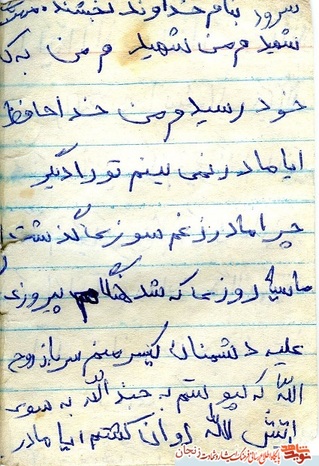 سرود بنام خداوند بخشنده
شهید م من شهید م من به
خود رسیدم من خداحافظ
ایا مادر نمی بینم تو را دیگر
چرا مادر زغم سوزی گذشت
روزی که شد هنگام پیروزی
علیه دشمنان منم سرباز روح
الله که پیوستم به جند الله به سوی
الله روان گشتم ایا مادر
نوید شاهد
پایگاه اطلاع رسانی فرهنگ ایثار و شهادت زنجان